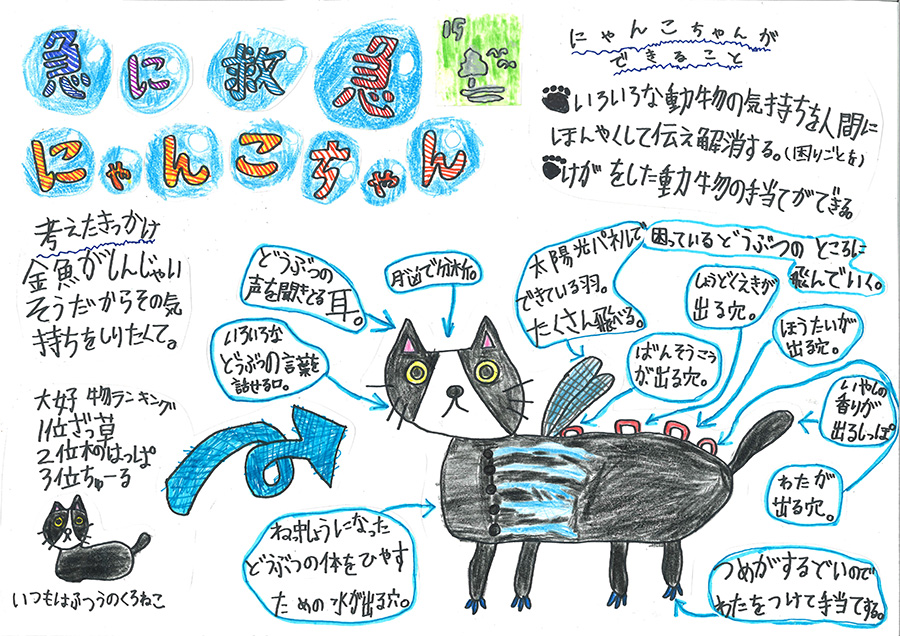 急に救急
にゃんこちゃん
にゃんこちゃんが
できること
いろいろな動物の気持ちを人間に
ほんやくして伝え解消する。(困りごとを)
けがをした動物の手当てができる。
考えたきっかけ
金魚がしんじゃい
そうだからその気
持ちをしりたくて。
どうぶつの
声を聞きとる
耳。
月凶で分析。
太陽光パネルで
できている羽。
たくさん飛べる。
困っているどうぶつのところに
飛んでいく。
しょうどくえきが
出る穴。
ほうたいが
出る穴。
いろいろな
どうぶつの言葉を
話せる口。
ばんそうこう
が出る穴。
いやしの
香りが
出るしっぽ
わたが
出る穴。
大好物ランキング
1位ざっ草
2位木のはっぱ
3位ちゅーる
いつもはふつうのくろねこ
ねっ中しょうになった
どうぶつの体をひやす
ための水が出る穴。
つめがするどいので
わたをつけて手当てする。